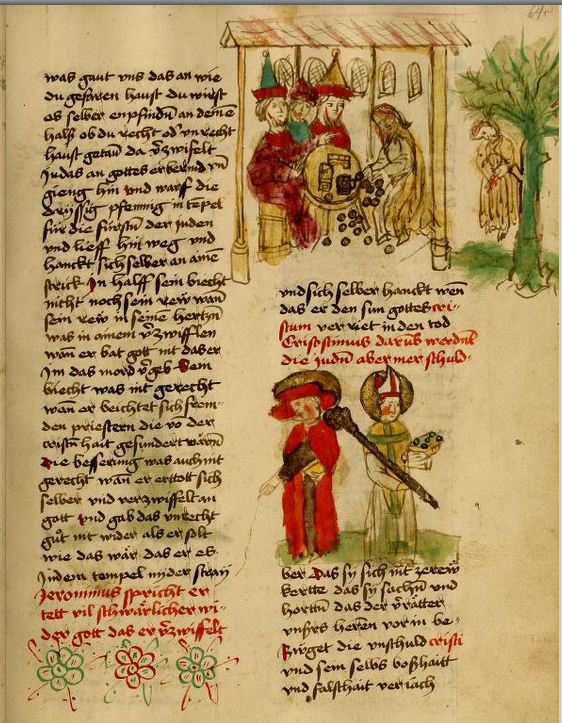 64r
was gaut vns das an wie
du gefaren haust du wirst
es selber enpfindn an deinē
halß ob du recht od' vnrecht
haust getaū da v̄zwifelt
Judas an gottes erbermd vn̄
gieng hin vnd warf die
drÿssig pfenning in tēpel
für die fürstn̄ der juden
vnd lieff hin weg vnd
hanckt sich selber an aine
strick In halff sein biecht
nicht noch sein rew wan
sein rew in seine hertzn
was in ainem v̄zwifflen
wan er bat gott nit das er
Im das mord v̄geb Sein
biecht was nit gerecht
wan er beichtet sich frem-
den priestern die vo der
cristn̄hait gesundert warn̄
die besserung was auch nit
gerecht wan er ertott sich
selber vnd verzwiffelt an
gott vnd gab das vnrecht
gůt nit wider als er solt
wie das wär das er es
Jndem tempel nider straÿ
Jeronimus spricht er
tett vil schwärlicher wi-
der gott das er v̄zwiffelt
vnd sich selber hanckt wen
das er den sun gottes cri-
stum ver riet in den tod
Crisostimus dar vß werdnt
die Judn̄ aber mer schuld-
ber das sÿ sich nit
kertte das sÿ sachn̄ vnd
horttn̄ das der v̄rätter
vnsers heren vor in be-
züget die vnschuld cristi
vnd sein selbs boßhaitt
vnd falschait ver iach